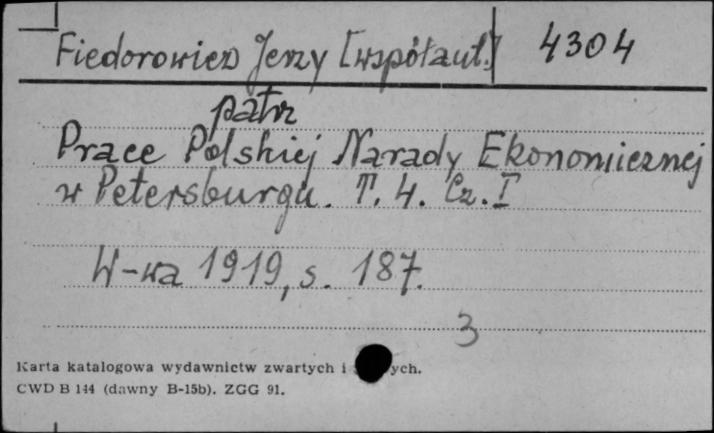 Fiedorowicz Jerzy [współaut.] 4304
patrz
Prace Polskiej Narady Ekonomicznej
w Petersburgu. T. 4. Cz. I
W-wa 1919, s. 187.
3
Karta katalogowa wydawnictw zwartych i ych.
CWD B 144 (dawny B-15b). ZGG 91.